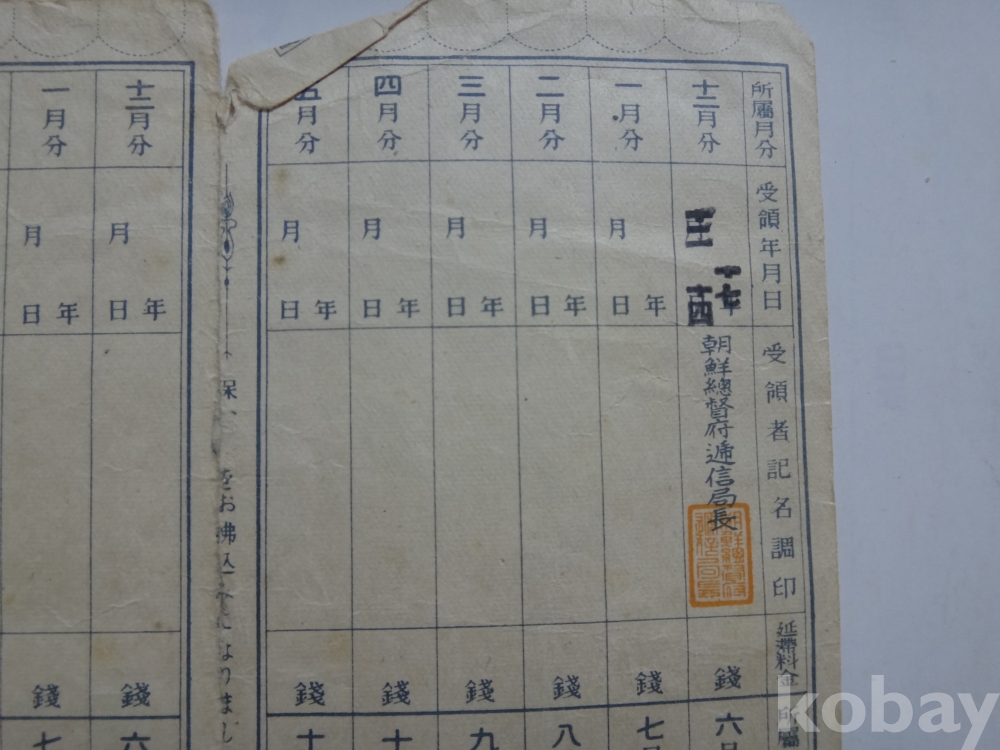 所屬月分
受領年月日
受領者記名調印
延滯料金
所屬
十二月分
年
朝鮮總督府遞信局長
錢
六月
一月分
月
年
日
錢
七月
二月分
月
年
日
錢
八
三月分
月
年
日
錢
九
四月分
月
年
日
錢
十
五月分
月
年
日
錢
十
をお拂込
になりまし
十二月分
月
年
日
錢
六
一月分
月
年
日
錢
七
kobay